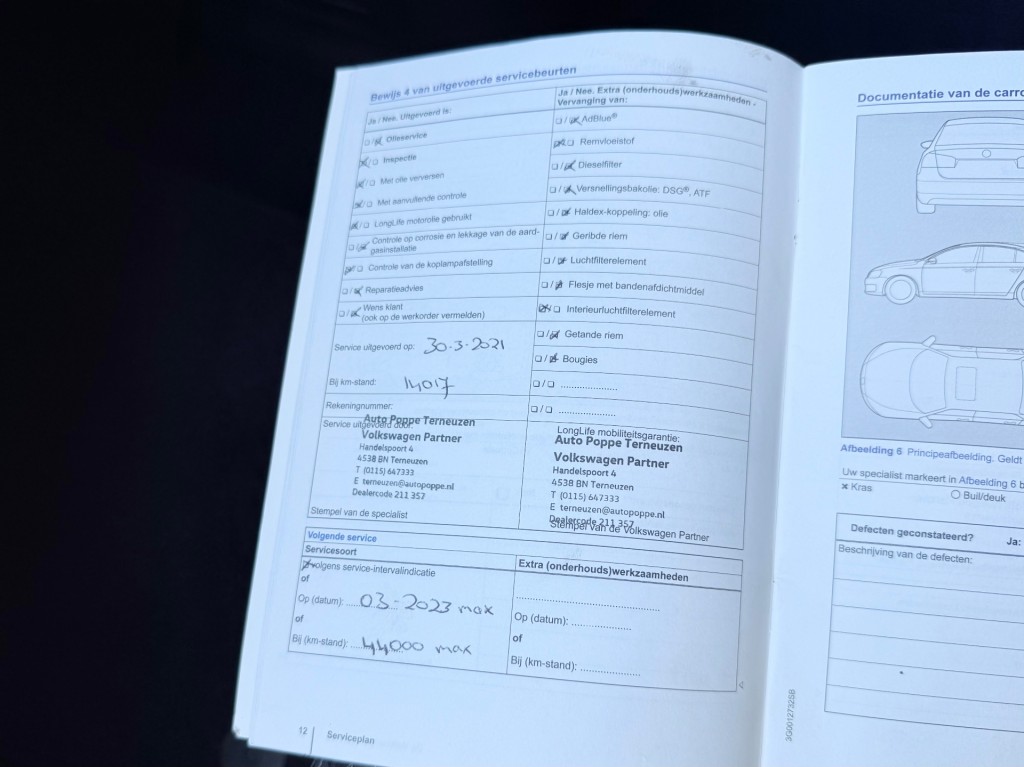 Bewijs 4 van uitgevoerde servicebeurten
Ja / Nee. Uitgevoerd is:
Olieservice
Inspectie
Met olie verversen
Met aanvullende controle
LongLife motorolie gebruikt
Controle op corrosie en lekkage van de aard-
gasinstallatie
Controle van de koplampafstelling
Reparatieadvies
Wens klant
(ook op de werkorder vermelden)
Service uitgevoerd op: 30-3-2021
Bij km-stand: 14017
Rekeningnummer:
Service uitgevoerd door:
Auto Poppe Terneuzen
Volkswagen Partner
Handelspoort 4
4538 BN Terneuzen
T (0115) 647333
E terneuzen@autopoppe.nl
Dealercode 211 357
Stempel van de specialist
Ja / Nee. Extra (onderhouds)werkzaamheden -
Vervanging van:
AdBlue®
Remvloeistof
Dieselfilter
Versnellingsbakolie: DSG®, ATF
Haldex-koppeling: olie
Geribde riem
Luchtfilterelement
Flesje met bandenafdichtmiddel
Interieurluchtfilterelement
Getande riem
Bougies
LongLife mobiliteitsgarantie:
Auto Poppe Terneuzen
Volkswagen Partner
Handelspoort 4
4538 BN Terneuzen
T (0115) 647333
E terneuzen@autopoppe.nl
Dealercode 211 357
Stempel van de Volkswagen Partner
Volgende service
Servicesoort
volgens service-intervalindicatie
of
Op (datum): 03-2023 max
of
Bij (km-stand): 44000 max
Extra (onderhouds)werkzaamheden
Op (datum):
of
Bij (km-stand):
12 Serviceplan
3G0012732SB
Documentatie van de carro
Afbeelding 6 Principeafbeelding. Geldt
Uw specialist markeert in Afbeelding 6 b
× Kras
○ Buil/deuk
Defecten geconstateerd? Ja:
Beschrijving van de defecten: